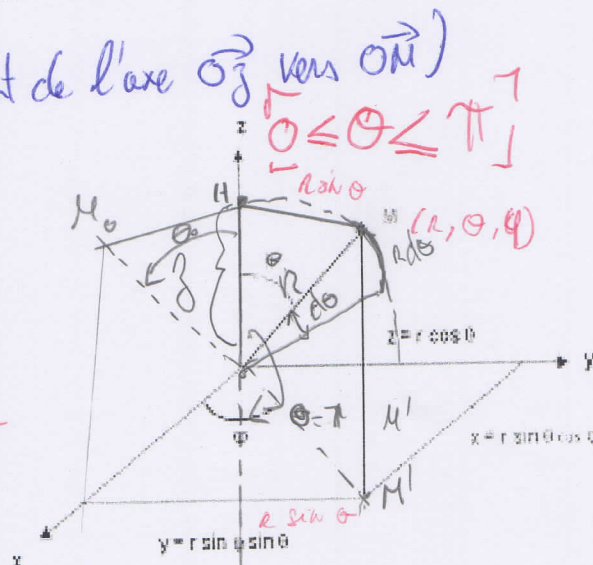 de l'axe Oz vers OM)
0 ≤ θ ≤ π
z
H
R sin θ
M₀
M (R, θ, φ)
θ₀
θ
R
Rdθ
z
dθ
z = r cos θ
y
θ=π
M'
φ
x = r sin θ cos θ
M'
R sin θ
y = r sin φ sin θ
x